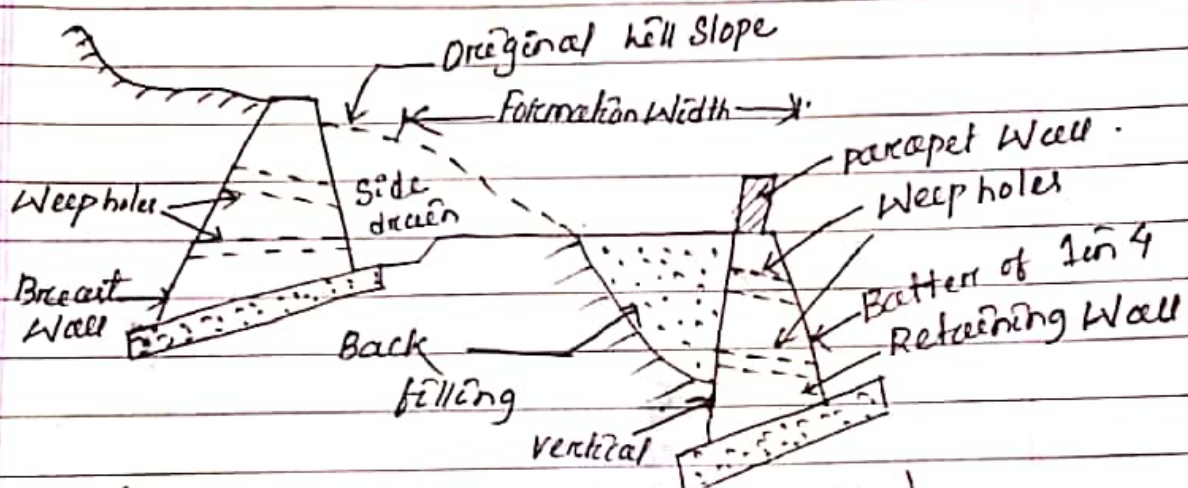 Original hill Slope
Formation Width
parapet Wall.
Weep holes
Weep holes
Side
drain
Batter of 1 in 4
Breast
Wall
Retaining Wall
Back
filling
vertical